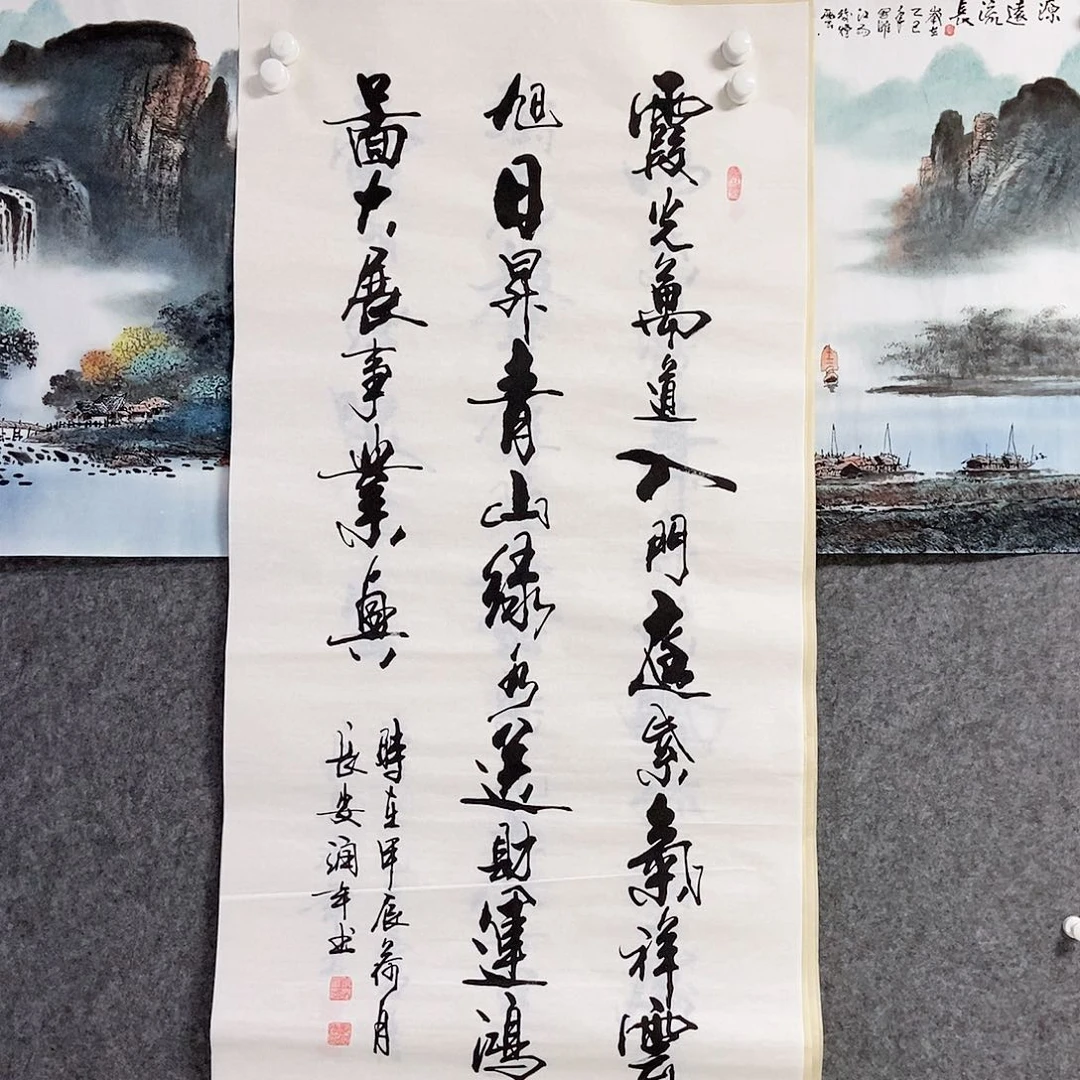 霞光萬道入門庭紫氣祥雲
旭日昇青山緑水送財運鴻
圖大展事業興
時在甲辰荷月
長安潤年书
源遠流長